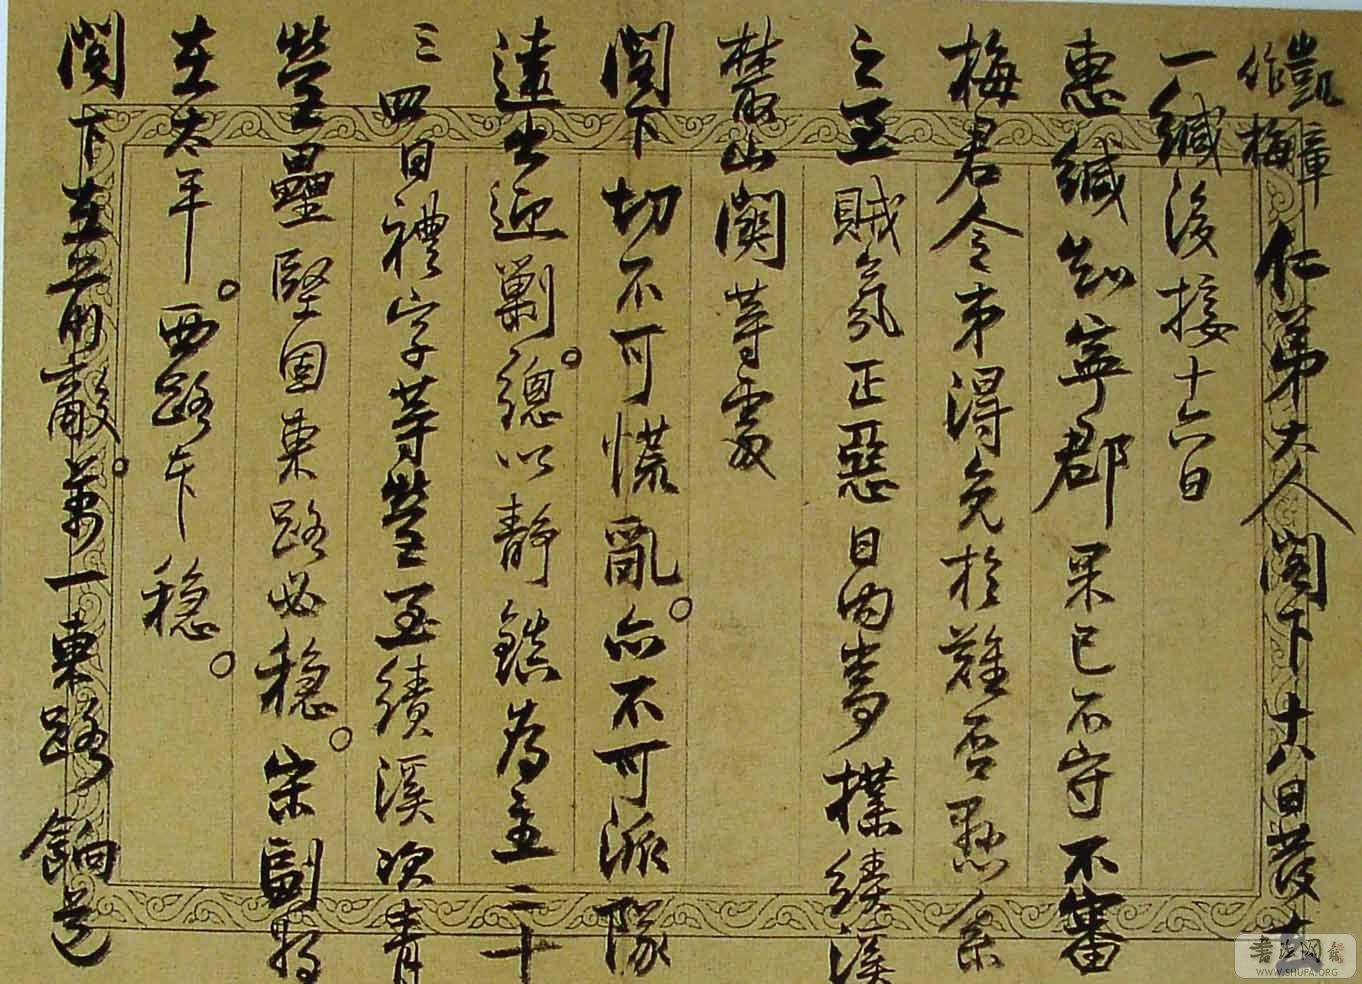 凱章
作梅 仁弟大人閣下十八日發
一緘後接十六日
惠緘知寧郡果已不守不審
梅君令弟得免於難否懸系
之至賊氛正惡日內當撲績溪
叢山關等處
閣下切不可慌亂亦不可派隊
遠出迎剿總以靜鎮為主二十
三四日禮字等營至績溪次青
營壘堅固東路必穩宋副將
在太平西路亦穩
閣下在無萬一東路餉道
書法网
WWW.SHUFA.ORG